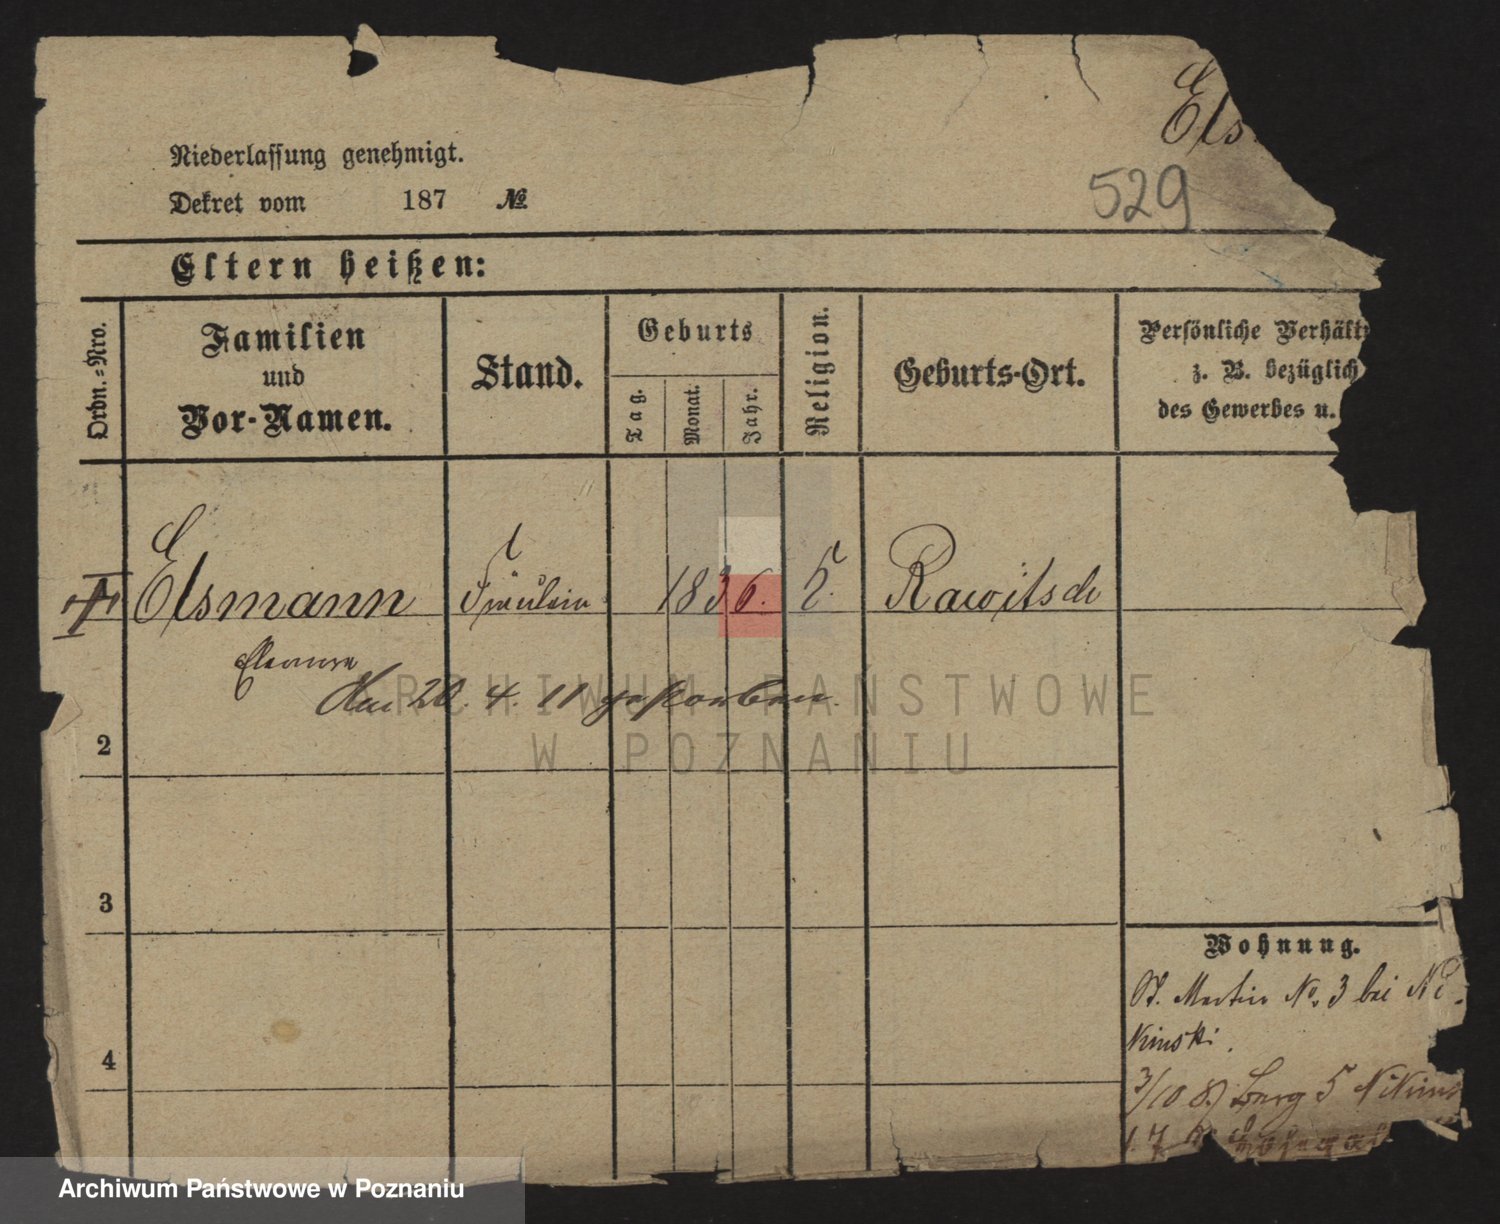 Els
529
Niederlassung genehmigt.
Dekret vom 187 №
Eltern heißen:
Ordn.-Nro.
Familien
und
Vor-Namen.
Stand.
Geburts
Tag.
Monat.
Jahr.
Religion.
Geburts-Ort.
Persönliche Verhält
z. B. bezüglich
des Gewerbes u.
Elsmann Fräulein 1836. Rawitsch
Eleonore
20. 4. 11 gestorben.
2
3
4
Wohnung.
St. Martin No. 3 bei Ni-
kinski.
3/10 8 Berg 5 Nikins
ARCHIWUM PAŃSTWOWE
W POZNANIU
Archiwum Państwowe w Poznaniu